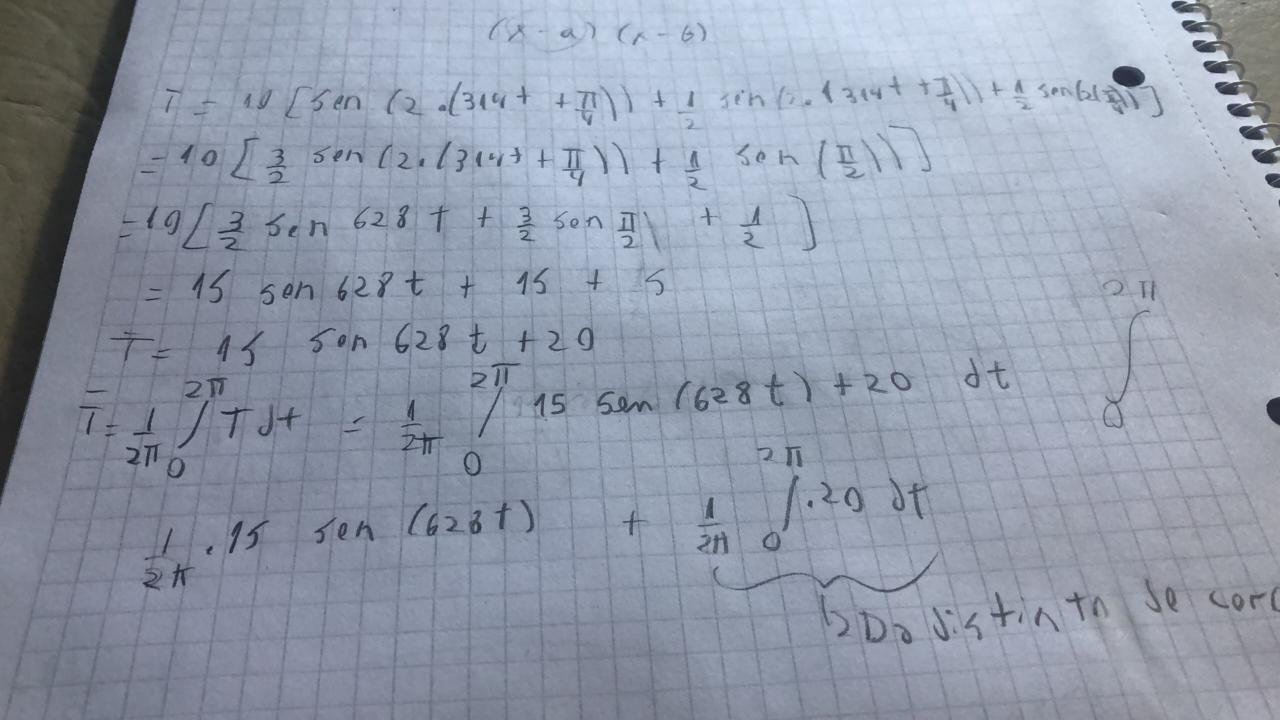 (x - a) (x - b)
T = 10 [ sen (2.(314t + π/4)) + 1/2 sen (2.(314t + π/4)) + 1/2 sen(2(π/4)) ]
= 10 [ 3/2 sen (2.(314t + π/4)) + 1/2 sen (π/2)) ]
= 10 [ 3/2 sen 628 t + 3/2 sen π/2 \ + 1/2 ]
= 15 sen 628 t + 15 + 5
T = 15 sen 628 t + 20
T̄ = 1/2π ∫₀^2π T dt = 1/2π ∫₀^2π 15 sen (628 t) + 20 dt
∫₀^2π
1/2π . 15 sen (628t) + 1/2π ∫₀^2π .20 dt
Da distinto de